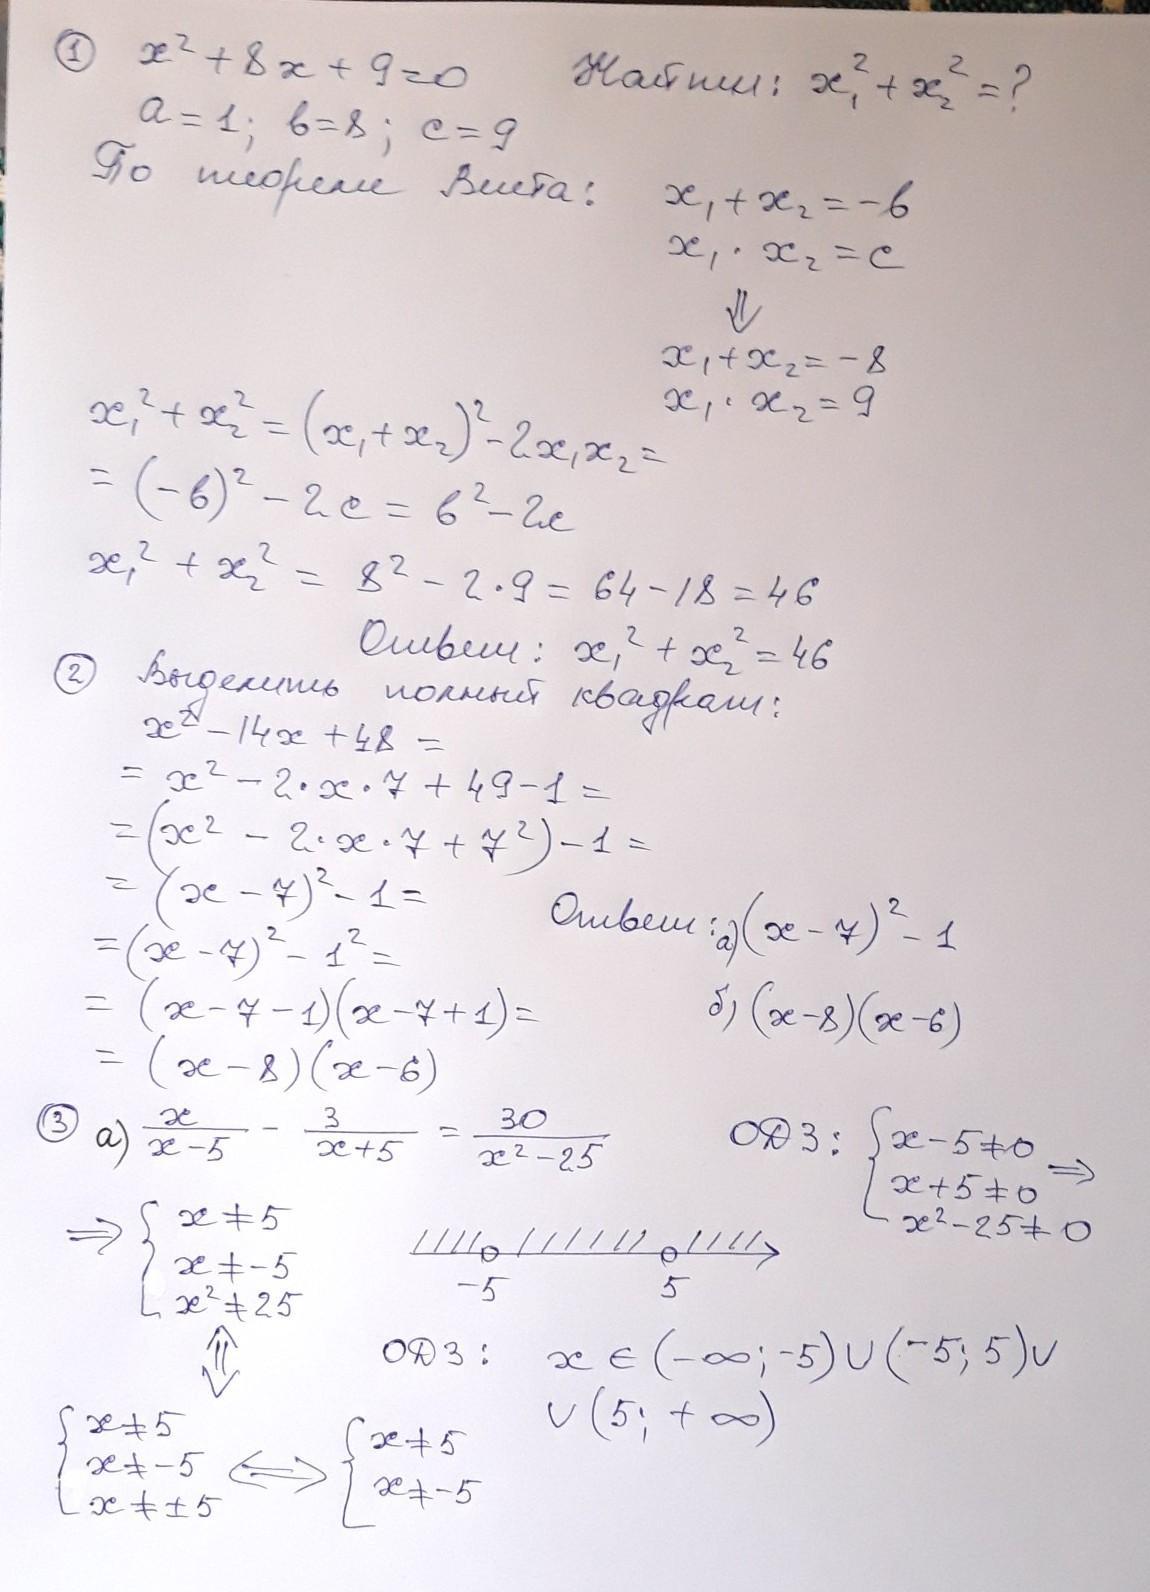 ① x² + 8x + 9 = 0 Найти: x₁² + x₂² = ?
a = 1; b = 8; c = 9
По теореме Виета: x₁ + x₂ = -b
x₁ · x₂ = c
⇓
x₁ + x₂ = -8
x₁ · x₂ = 9
x₁² + x₂² = (x₁ + x₂)² - 2x₁x₂ =
= (-b)² - 2c = b² - 2c
x₁² + x₂² = 8² - 2·9 = 64 - 18 = 46
Ответ: x₁² + x₂² = 46
② Выделить полный квадрат:
x² - 14x + 48 =
= x² - 2·x·7 + 49 - 1 =
= (x² - 2·x·7 + 7²) - 1 =
= (x - 7)² - 1 =
Ответ: а) (x - 7)² - 1
= (x - 7)² - 1² =
= (x - 7 - 1)(x - 7 + 1) = б) (x - 8)(x - 6)
= (x - 8)(x - 6)
③ а) x/(x - 5) - 3/(x + 5) = 30/(x² - 25) ОДЗ: { x - 5 ≠ 0
x + 5 ≠ 0 ⇒
x² - 25 ≠ 0
⇒ { x ≠ 5
x ≠ -5
x² ≠ 25
-5 5
⇕
ОДЗ: x ∈ (-∞; -5) ∪ (-5; 5) ∪
∪ (5; +∞)
{ x ≠ 5
x ≠ -5
x ≠ ±5
⇔ { x ≠ 5
x ≠ -5